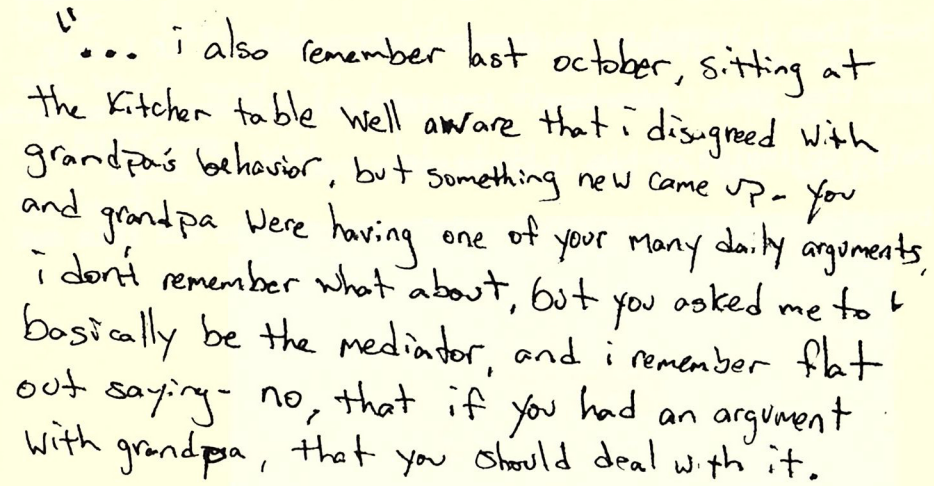 "... i also remember last october, sitting at
the kitchen table well aware that i disagreed with
grandpa's behavior, but something new came up - you
and grandpa were having one of your many daily arguments,
i don't remember what about, but you asked me to b
basically be the mediator, and i remember flat
out saying - no, that if you had an argument
with grandpa, that you should deal with it.